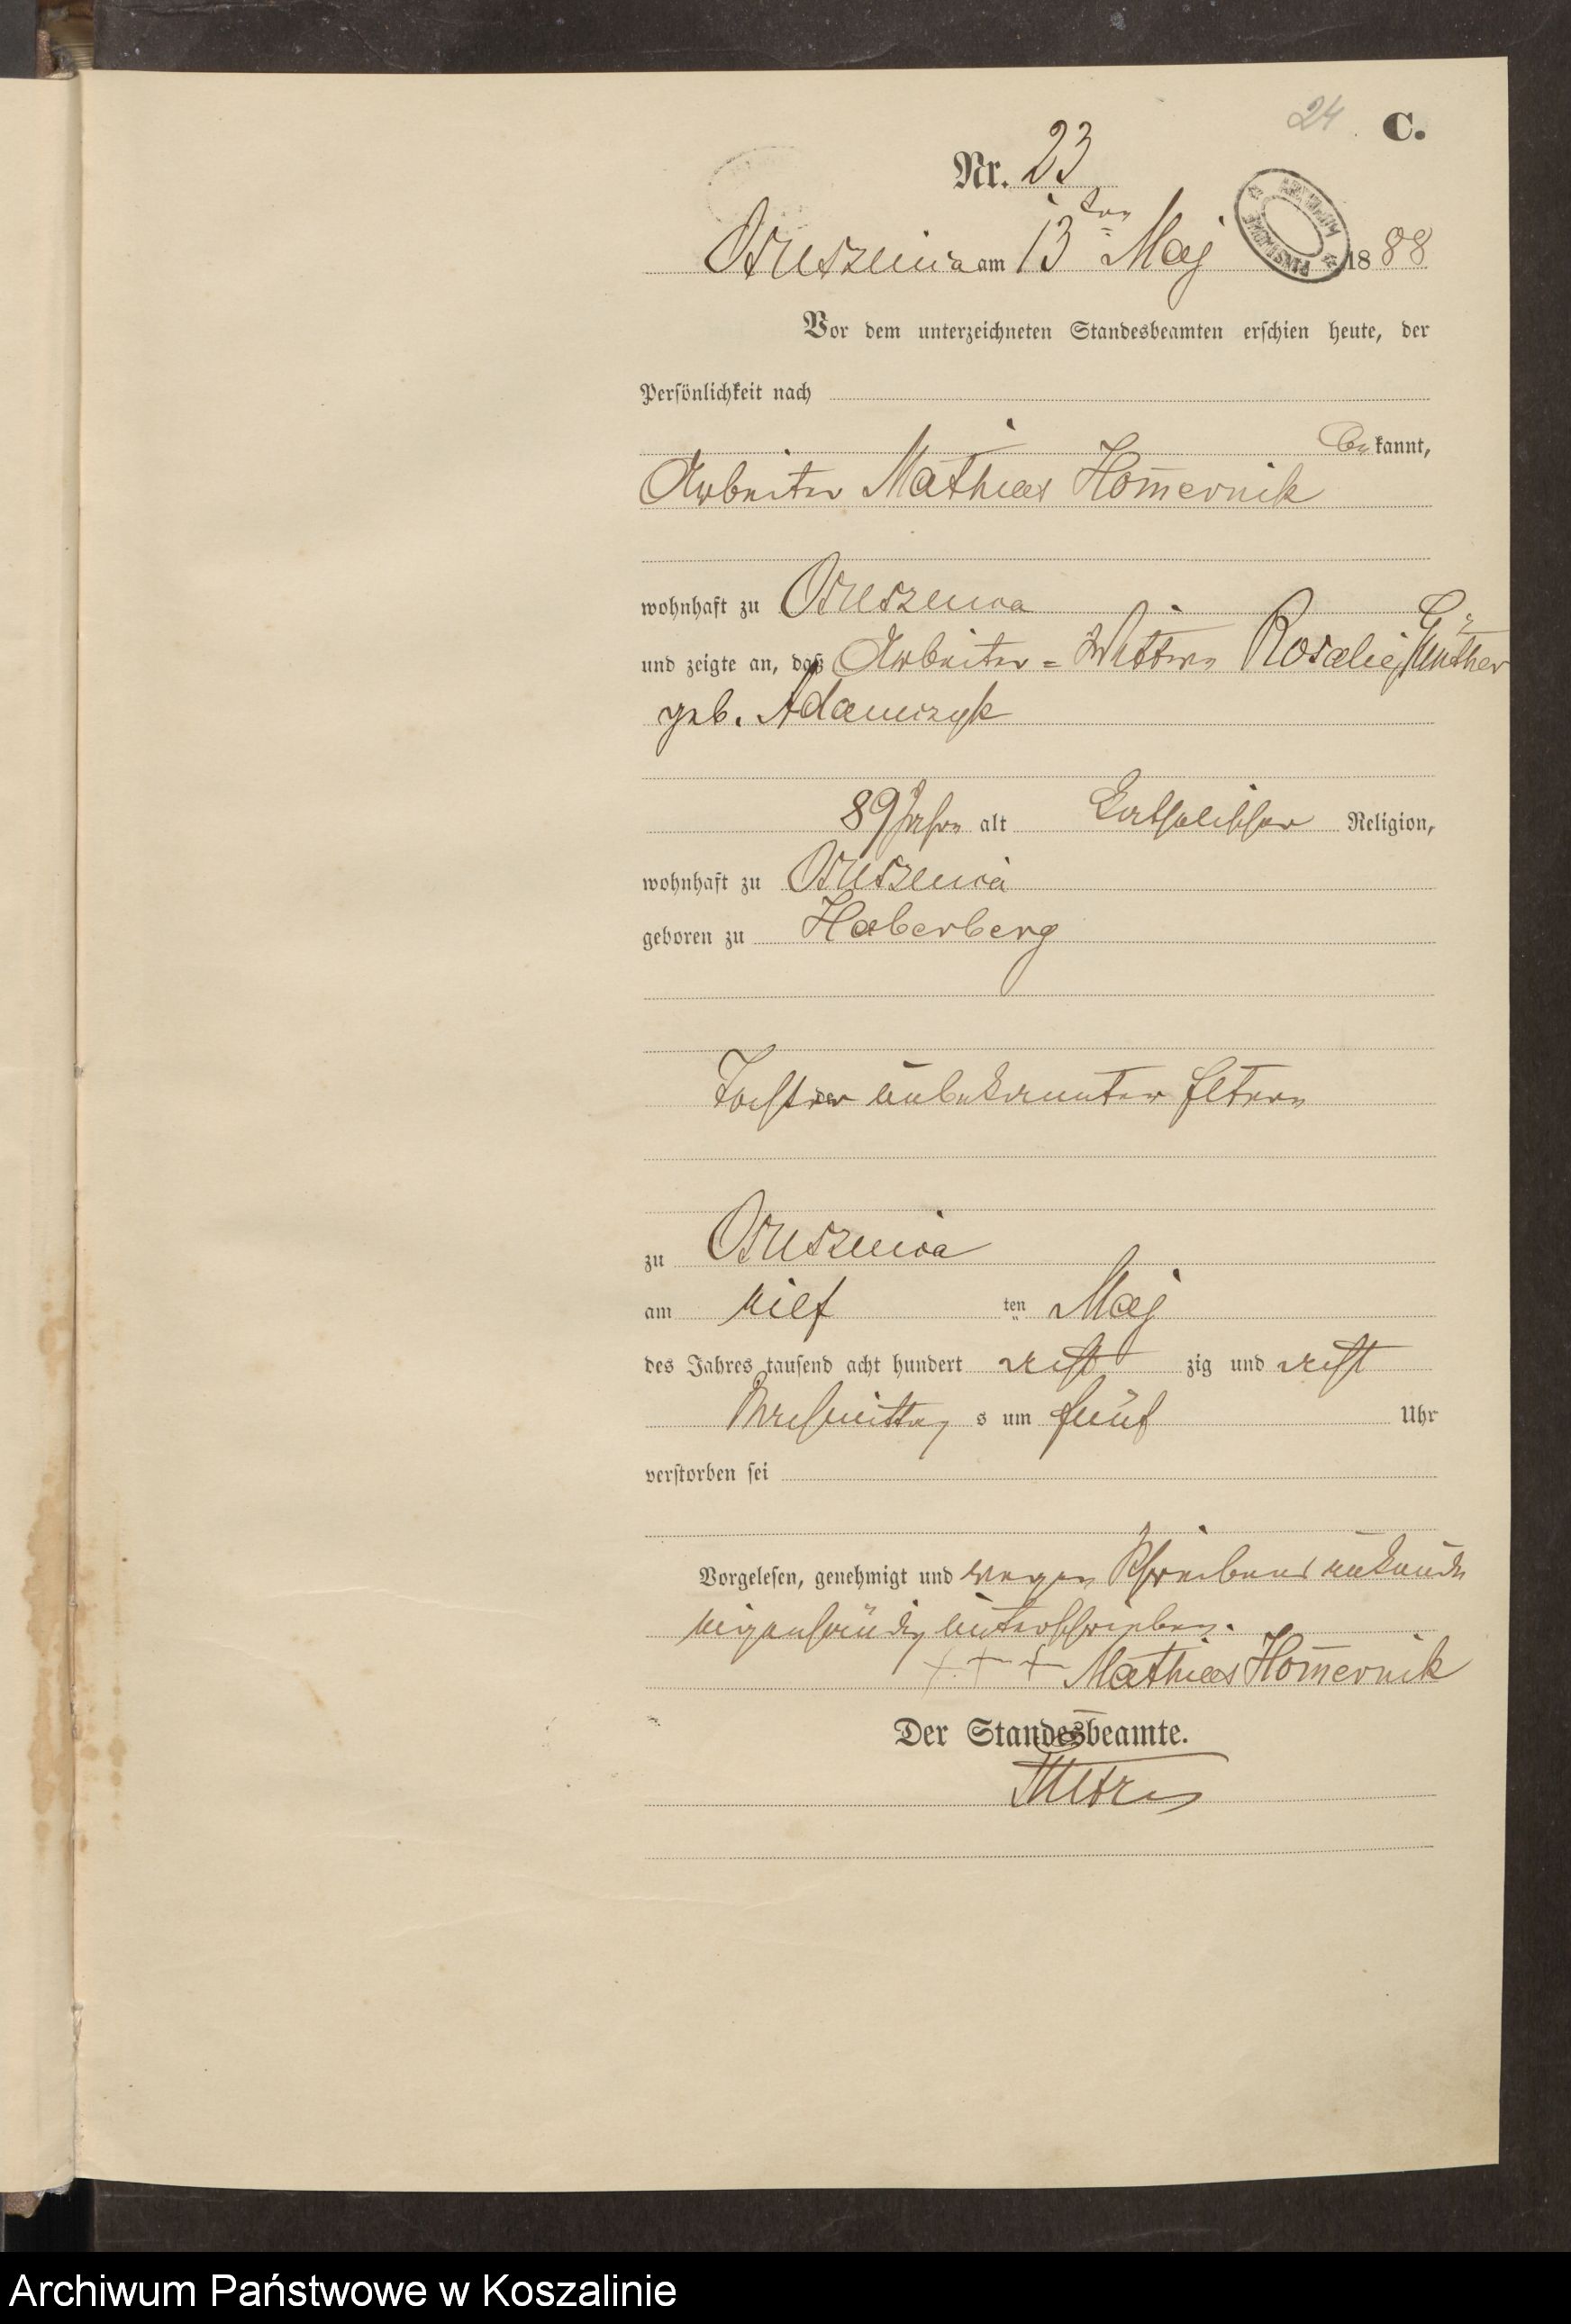 24 C.
Nr. 23
Osusznica am 13ten Maj 1888
Vor dem unterzeichneten Standesbeamten erschien heute, der
Persönlichkeit nach
bekannt,
Arbeiter Mathias Hom̄ernik
wohnhaft zu
und zeigte an, daß Arbeiter-Wittwe Rosalie Günther
geb. Adamczyk
89 Jahre alt katholischer Religion,
wohnhaft zu
geboren zu Haberberg
Tochter unbekannter Eltern
zu
am elf ten Maj
des Jahres tausend acht hundert acht zig und acht
Nachmittags um fünf Uhr
verstorben sei
Vorgelesen, genehmigt und wegen Schreibens unkunde
eigenhändig unterschrieben.
+ + + Mathias Hom̄ernik
Der Standesbeamte.
Archiwum Państwowe w Koszalinie